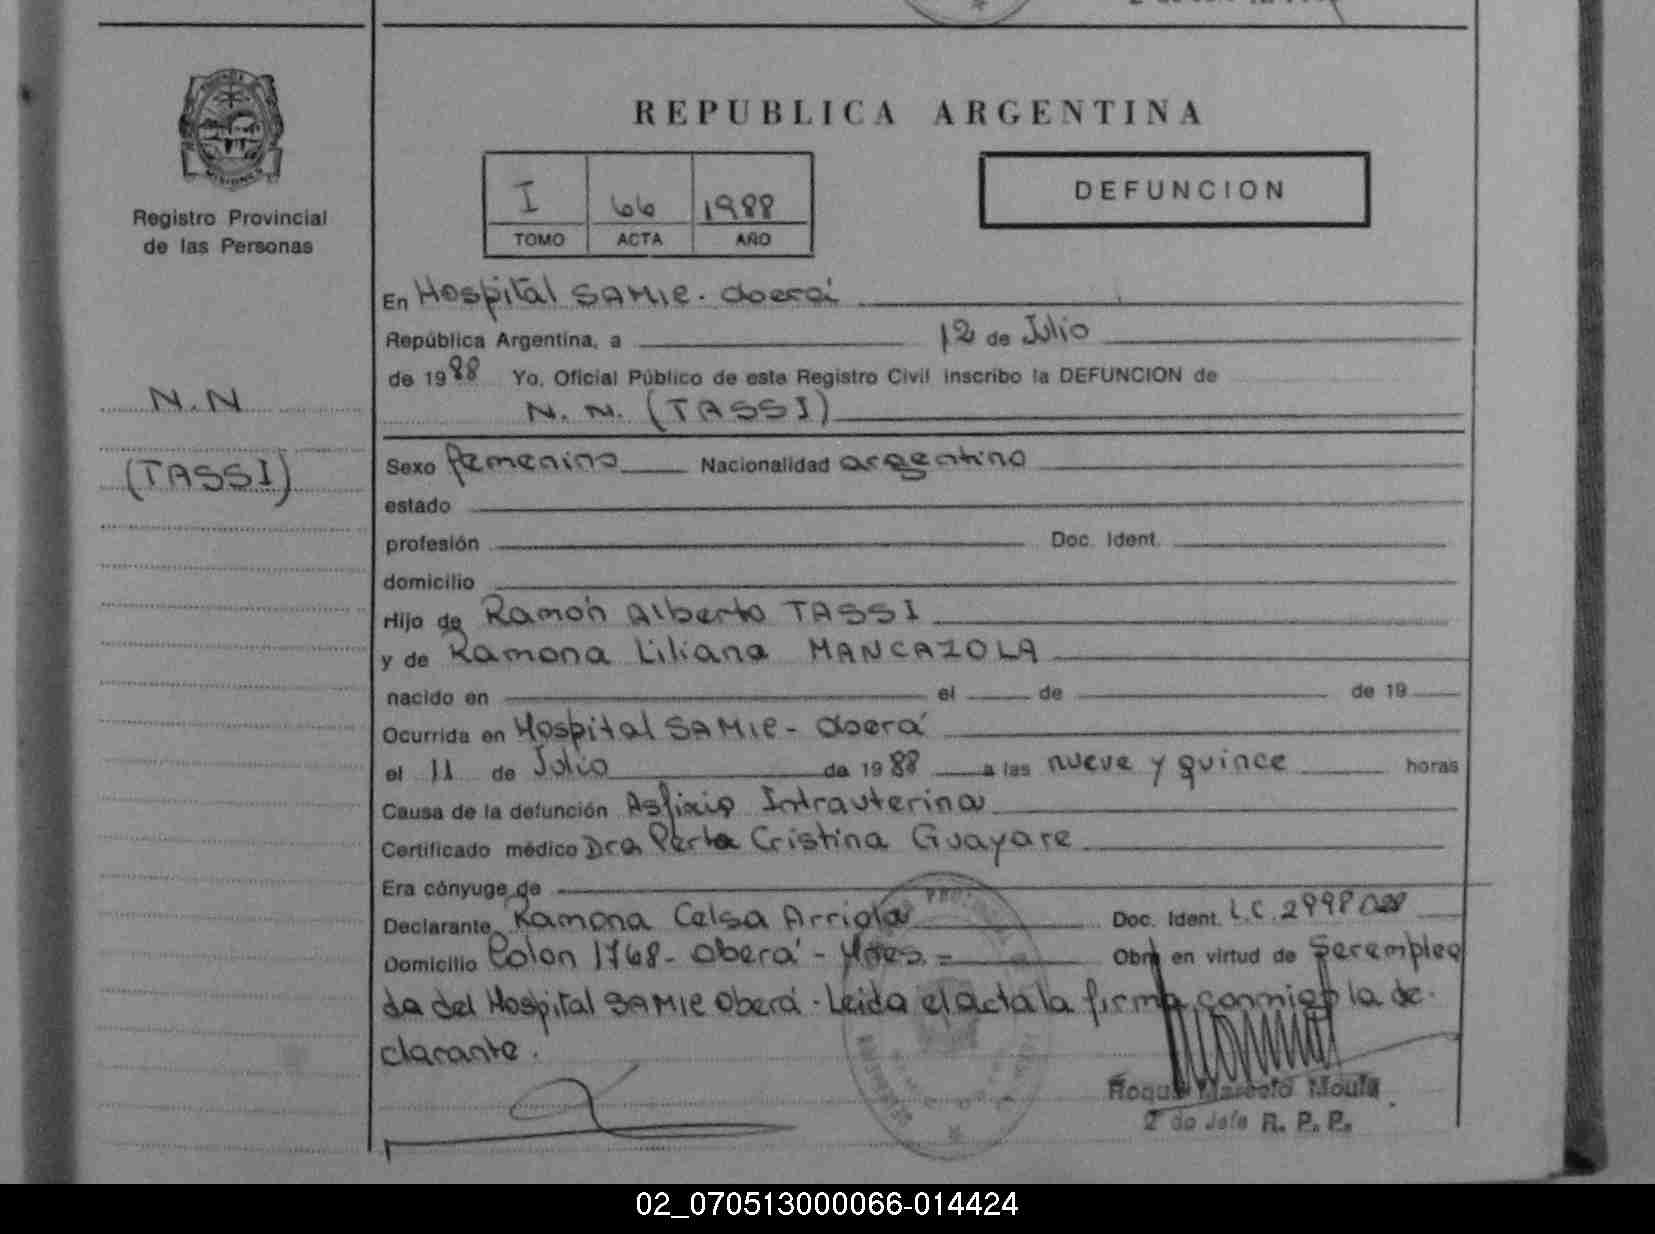 REPUBLICA ARGENTINA
I 66 1988
TOMO ACTA AÑO
DEFUNCION
Registro Provincial
de las Personas
N.N
(TASSI)
En Hospital SAMIC. Oberá
República Argentina, a 12 de Julio
de 1988 Yo, Oficial Público de este Registro Civil inscribo la DEFUNCION de
N. N. (TASSI)
Sexo femenino Nacionalidad argentina
estado
profesión Doc. Ident.
domicilio
Hijo de Ramón Alberto TASSI
y de Ramona Liliana MANCAZOLA
nacido en el de de 19
Ocurrida en Hospital SAMIC - Oberá
el 11 de Julio de 1988 a las nueve y quince horas
Causa de la defunción Asfixia Intrauterina
Certificado médico Dra Perla Cristina Guayare
Era cónyuge de
Declarante Ramona Celsa Arriola Doc. Ident. L.C.
Domicilio Colon 1768 - Oberá - Mnes. = Obra en virtud de Ser emplea
da del Hospital SAMIC Oberá - Leida el acta la firma conmigo la de-
clarante.
Roque Marcelo
2do Jefe R. P. P.
02_070513000066-014424